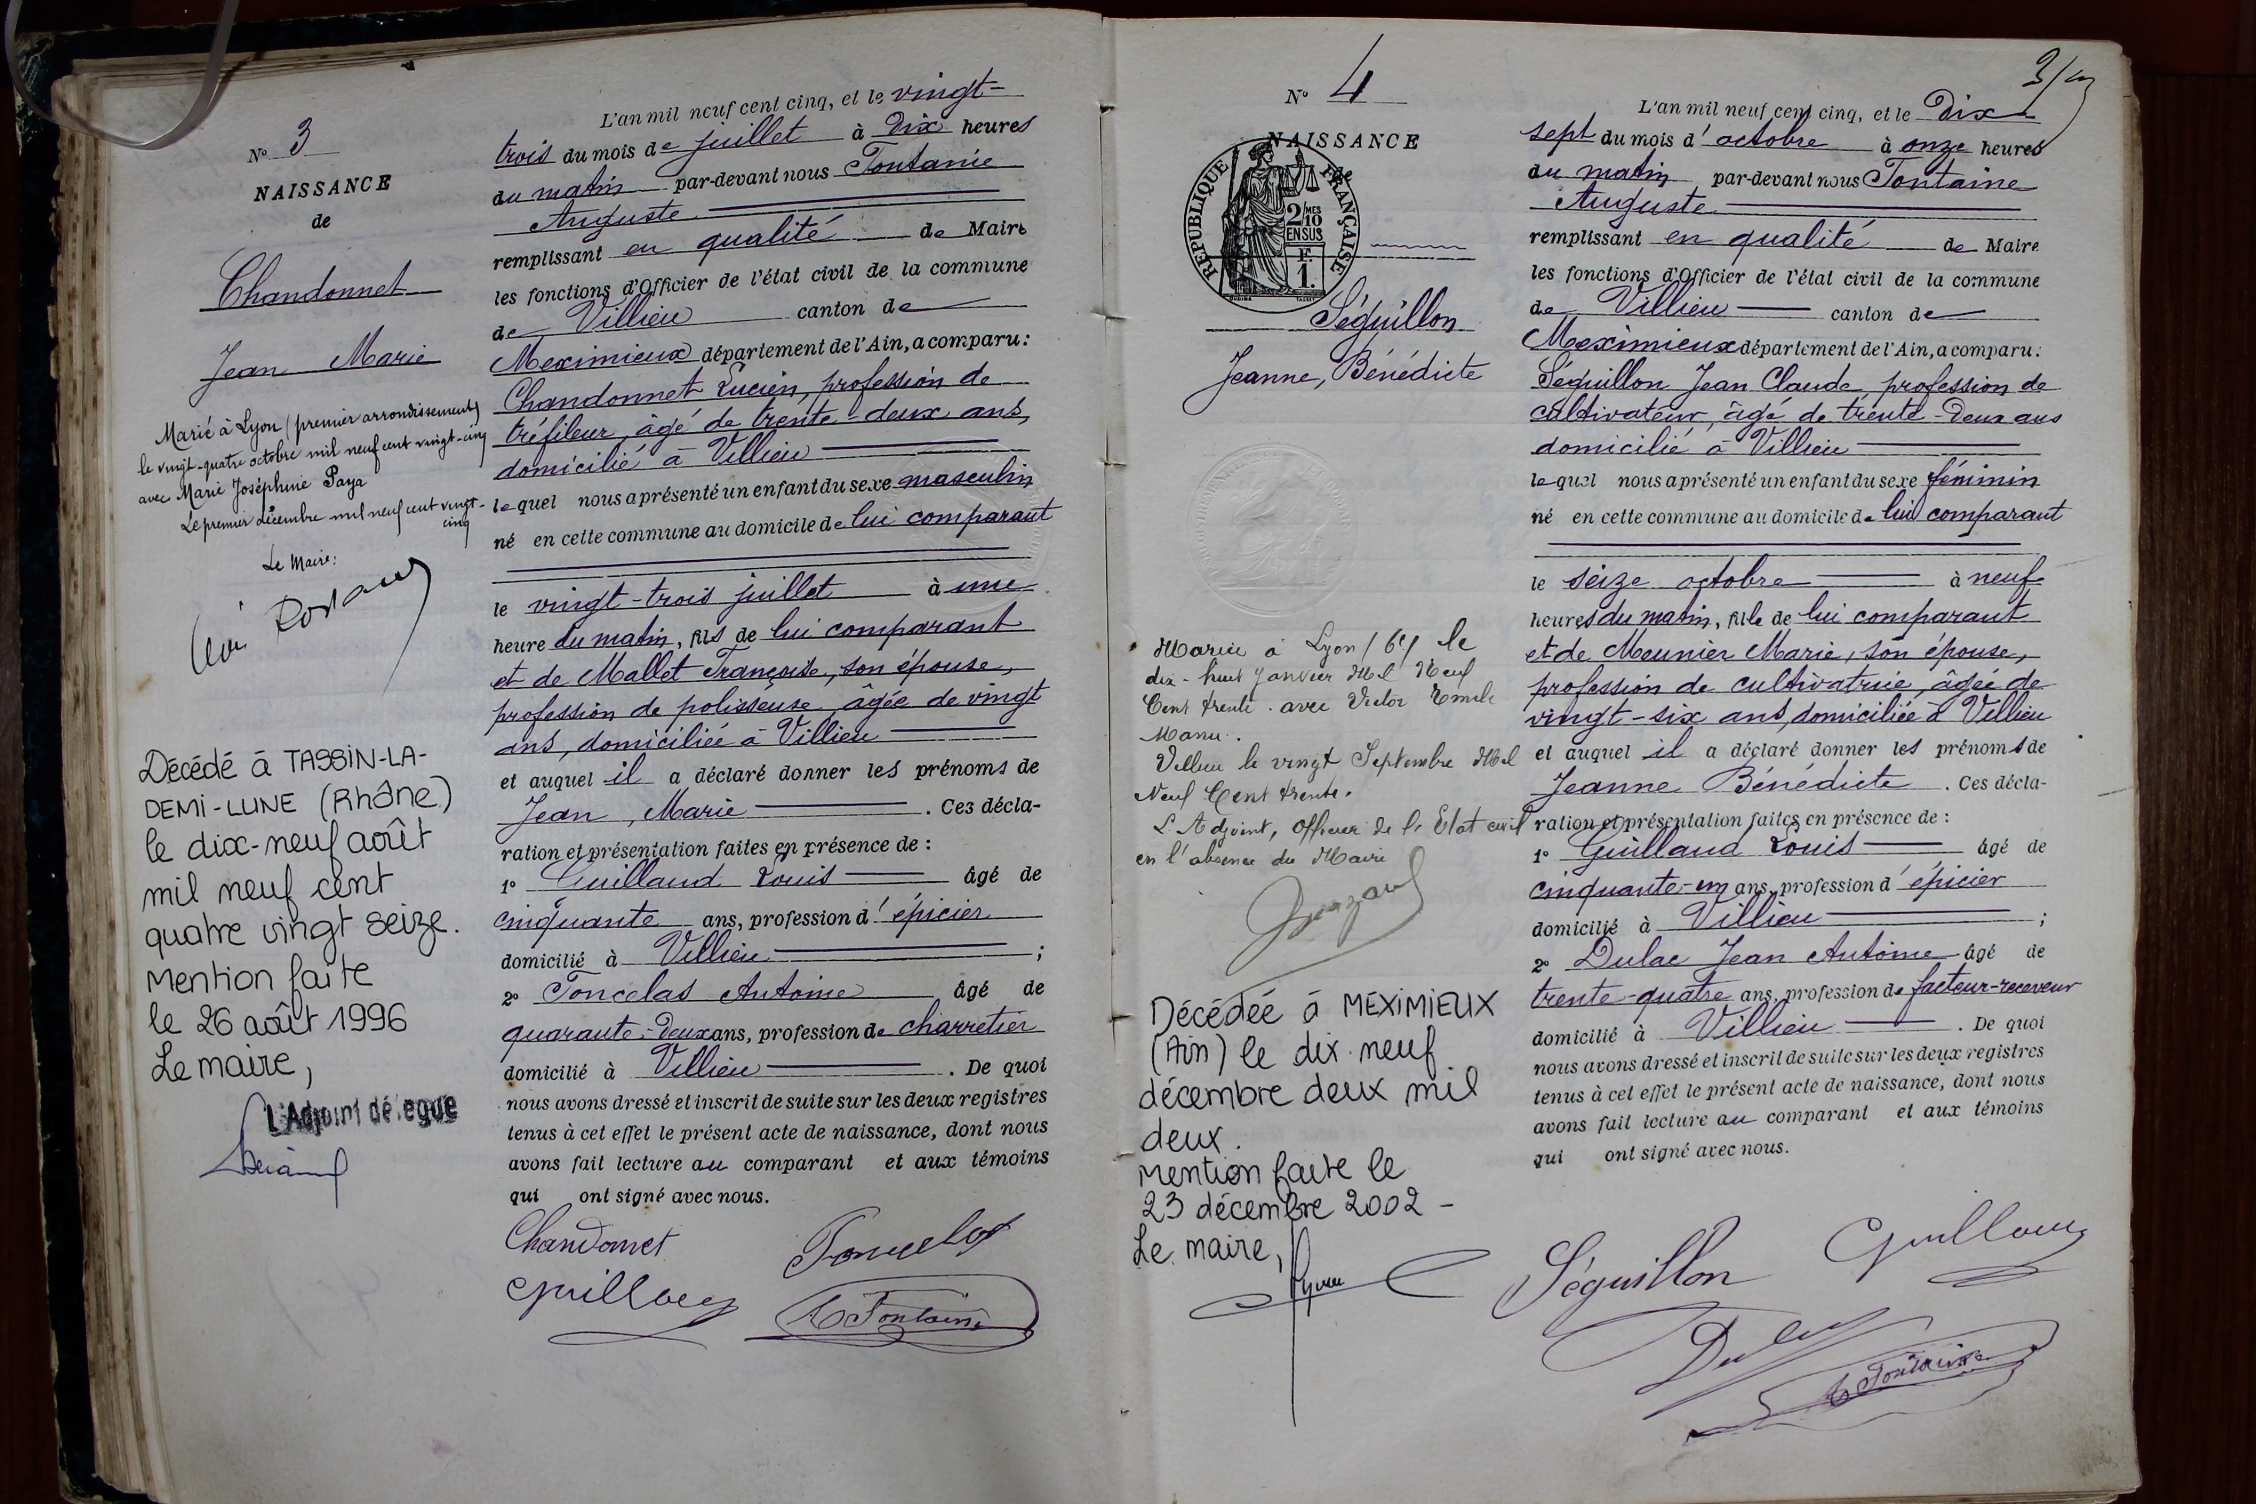 N° 3
NAISSANCE
de
Chandonnet
Jean Marie
Marié à Lyon (premier arrondissement)
le vingt-quatre octobre mil neuf cent vingt-cinq
avec Marie Joséphine Paya
Le premier décembre mil neuf cent vingt-
cinq
Le Maire:
Décédé à TASSIN-LA-
DEMI-LUNE (Rhône)
le dix-neuf août
mil neuf cent
quatre vingt seize.
Mention faite
le 26 août 1996
Le maire,
L'Adjoint délégué
L'an mil neuf cent cinq, et le vingt-
trois du mois de juillet à Dix heures
du matin par-devant nous Fontanie
Auguste
remplissant en qualité de Maire
les fonctions d'Officier de l'état civil de la commune
de Villieu canton de
Meximieux département de l'Ain, a comparu:
Chandonnet Lucien, profession de
tréfileur, âgé de trente-deux ans,
domicilié à Villieu
lequel nous a présenté un enfant du sexe masculin
né en cette commune au domicile de lui comparant
le vingt-trois juillet à une
heure du matin, fils de lui comparant
et de Mallet Françoise, son épouse,
profession de polisseuse, âgée de vingt
ans, domiciliée à Villieu
et auquel il a déclaré donner les prénoms de
Jean, Marie . Ces décla-
ration et présentation faites en présence de :
1° Guillaud Louis âgé de
cinquante ans, profession d'épicier
domicilié à Villieu ;
2° Foncelas Antoine âgé de
quarante-deux ans, profession de charretier
domicilié à Villieu . De quoi
nous avons dressé et inscrit de suite sur les deux registres
tenus à cet effet le présent acte de naissance, dont nous
avons fait lecture au comparant et aux témoins
qui ont signé avec nous.
Chandonnet
Guillaud
A Fontaine
N° 4
NAISSANCE
de
REPUBLIQUE FRANÇAISE
2/10 MES
EN SUS
F.
1.
Séguillon
Jeanne, Bénédicte
Mariée à Lyon (6e) le
dix-huit Janvier Mil Neuf
Cent trente. avec Victor Emile
Manu.
Villieu le vingt Septembre Mil
Neuf Cent trente.
L'Adjoint, Officier de l'Etat civil
en l'absence du Maire
Décédéé à MEXIMIEUX
(Ain) le dix.neuf
décembre deux mil
deux.
Mention faite le
23 décembre 2002 -
Le maire,
L'an mil neuf cent cinq, et le Dix
sept du mois d'octobre à onze heures
du matin par-devant nous Fontaine
Auguste
remplissant en qualité de Maire
les fonctions d'Officier de l'état civil de la commune
de Villieu canton de
Meximieux département de l'Ain, a comparu:
Séguillon Jean Claude, profession de
cultivateur, âgé de trente-deux ans
domicilié à Villieu
lequel nous a présenté un enfant du sexe féminin
né en cette commune au domicile de lui comparant
le seize octobre à neuf
heures du matin, fille de lui comparant
et de Meunier Marie, son épouse,
profession de cultivatrice, âgée de
vingt-six ans, domiciliée à Villieu
et auquel il a déclaré donner les prénoms de
Jeanne Bénédicte . Ces décla-
ration et présentation faites en présence de :
1° Guillaud Louis âgé de
cinquante-un ans, profession d'épicier
domicilié à Villieu ;
2° Dulac Jean Antoine âgé de
trente-quatre ans, profession de facteur-receveur
domicilié à Villieu . De quoi
nous avons dressé et inscrit de suite sur les deux registres
tenus à cet effet le présent acte de naissance, dont nous
avons fait lecture au comparant et aux témoins
qui ont signé avec nous.
Séguillon
Guillaud
A Fontaine